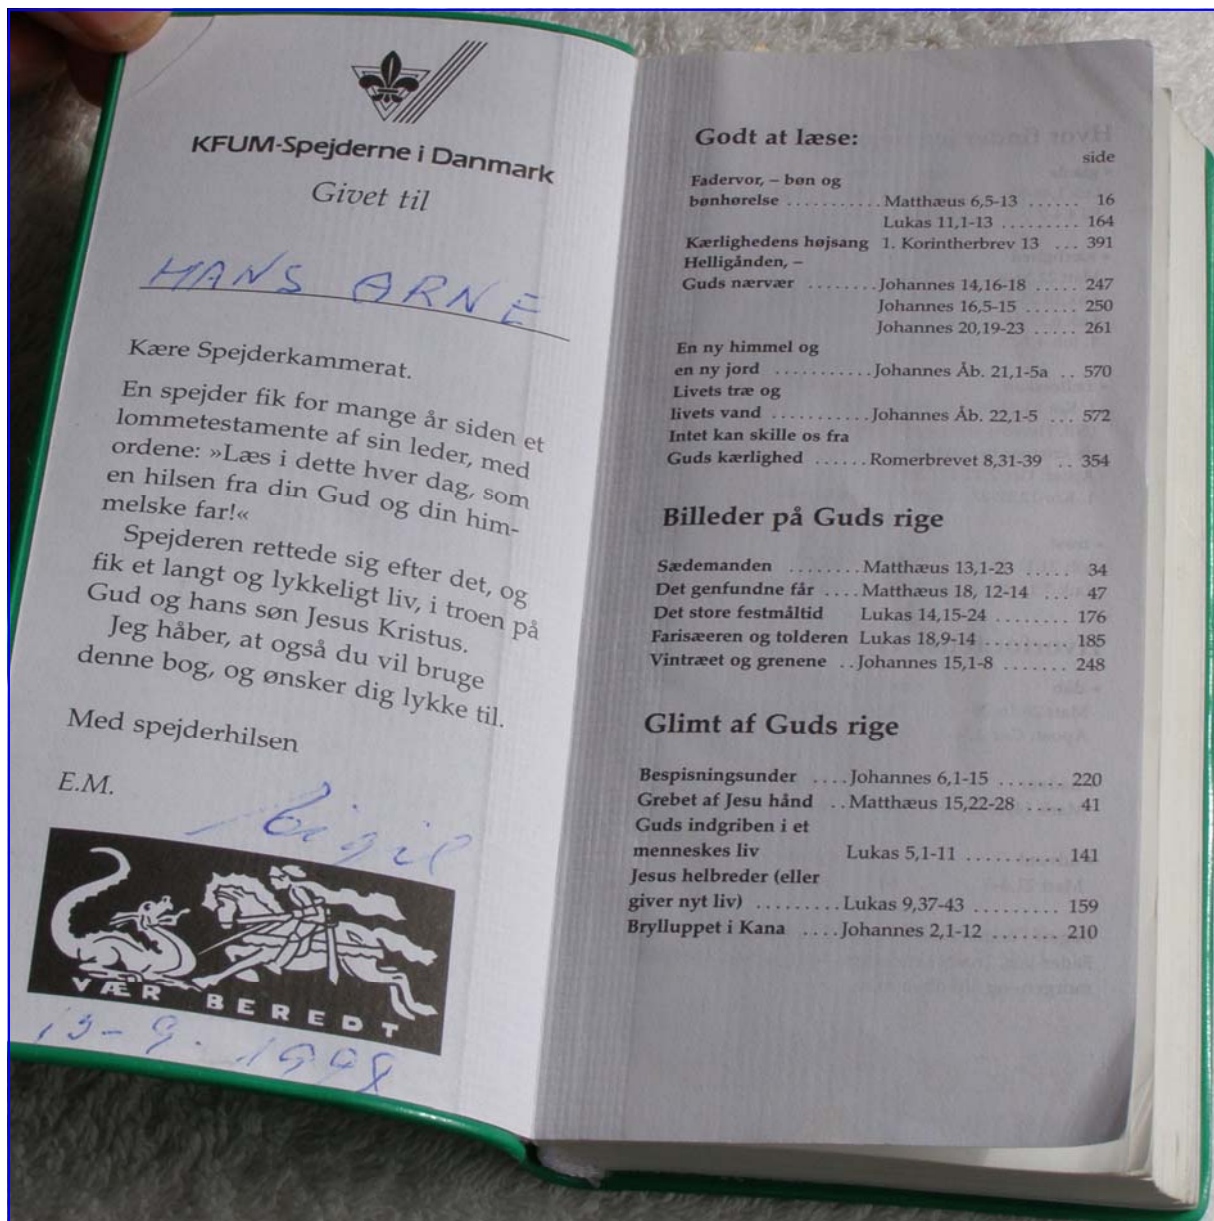 KFUM-Spejderne i Danmark
Givet til
HANS ARNE
Kære Spejderkammerat.
En spejder fik for mange år siden et
lommetestamente af sin leder, med
ordene: »Læs i dette hver dag, som
en hilsen fra din Gud og din him-
melske far!«
Spejderen rettede sig efter det, og
fik et langt og lykkeligt liv, i troen på
Gud og hans søn Jesus Kristus.
Jeg håber, at også du vil bruge
denne bog, og ønsker dig lykke til.
Med spejderhilsen
E.M.
VÆR BEREDT
13-9. 1998
Godt at læse:
side
Fadervor, – bøn og
bønhørelse ........... Matthæus 6,5-13 ...... 16
Lukas 11,1-13 ......... 164
Kærlighedens højsang 1. Korintherbrev 13 ... 391
Helligånden, –
Guds nærvær ........ Johannes 14,16-18 ..... 247
Johannes 16,5-15 ...... 250
Johannes 20,19-23 ..... 261
En ny himmel og
en ny jord ........... Johannes Åb. 21,1-5a .. 570
Livets træ og
livets vand ........... Johannes Åb. 22,1-5 ... 572
Intet kan skille os fra
Guds kærlighed ...... Romerbrevet 8,31-39 .. 354
Billeder på Guds rige
Sædemanden ........ Matthæus 13,1-23 ..... 34
Det genfundne får .... Matthæus 18, 12-14 ... 47
Det store festmåltid Lukas 14,15-24 ........ 176
Farisæeren og tolderen Lukas 18,9-14 ......... 185
Vintræet og grenene .. Johannes 15,1-8 ....... 248
Glimt af Guds rige
Bespisningsunder .... Johannes 6,1-15 ....... 220
Grebet af Jesu hånd .. Matthæus 15,22-28 .... 41
Guds indgriben i et
menneskes liv Lukas 5,1-11 .......... 141
Jesus helbreder (eller
giver nyt liv) ......... Lukas 9,37-43 ......... 159
Brylluppet i Kana .... Johannes 2,1-12 ....... 210